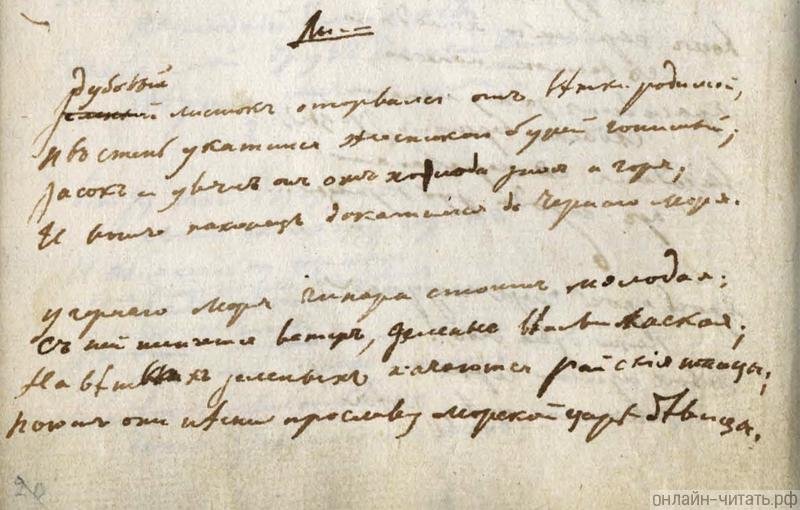 Листокъ
Дубовый
листокъ оторвался отъ вѣтки родимой,
И въ степь укатился жестокой бурей гонимый;
Засохъ и увялъ онъ отъ холода зноя и горя;
И вотъ наконецъ докатился до Чернаго моря.
У чернаго моря чинара стоитъ молодая;
Съ ней шепчется вѣтеръ, зеленые вѣтви лаская;
На вѣтвяхъ зеленыхъ качаются райскія птицы;
Поютъ они пѣсни про славу морской царь-дѣвицы.
20
онлайн-читать.рф